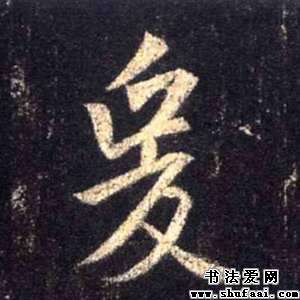 爰
书法爱网
www.shufaai.com